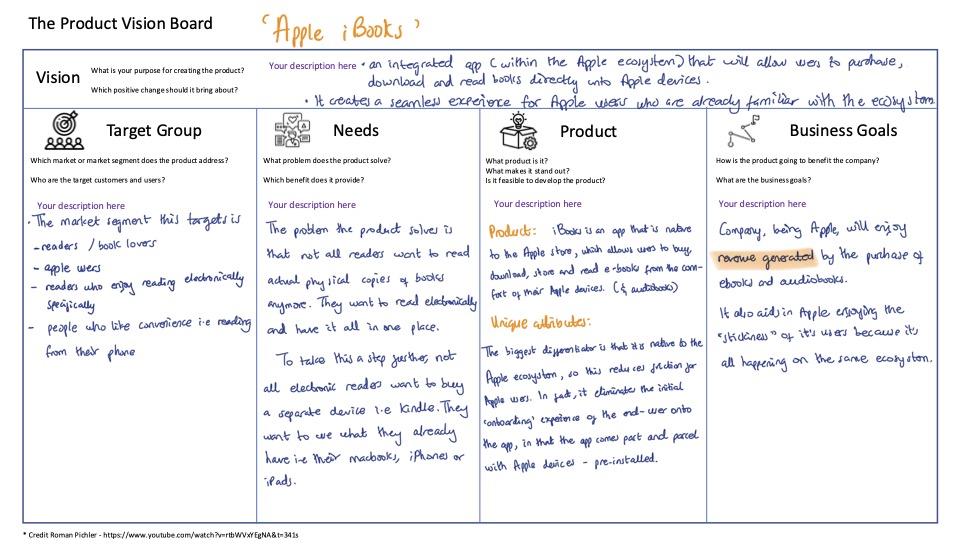 The Product Vision Board
'Apple iBooks'
Vision
What is your purpose for creating the product?
Which positive change should it bring about?
Your description here
• an integrated app (within the Apple ecosystem) that will allow users to purchase,
download and read books directly onto Apple devices.
• It creates a seamless experience for Apple users who are already familiar with the ecosystem
Target Group
Which market or market segment does the product address?
Who are the target customers and users?
Your description here
• The market segment this targets is
- readers / book lovers
- apple users
- readers who enjoy reading electronically
specifically
- people who like convenience i.e reading
from their phone
Needs
What problem does the product solve?
Which benefit does it provide?
Your description here
The problem the product solves is
that not all readers want to read
actual physical copies of books
anymore. They want to read electronically
and have it all in one place.
To take this a step further, not
all electronic readers want to buy
a separate device i.e Kindle. They
want to use what they already
have i-e their macbooks, iPhones or
iPads.
Product
What product is it?
What makes it stand out?
Is it feasible to develop the product?
Your description here
Product: iBooks is an app that is native
to the Apple store, which allows users to buy,
download, store and read e-books from the com-
fort of their Apple devices. (& audiobooks)
Unique attributes:
The biggest differentiator is that it is native to the
Apple ecosystem, so this reduces friction for
Apple users. In fact, it eliminates the initial
'onboarding' experience of the end-user onto
the app, in that the app comes part and parcel
with Apple devices - pre-installed.
Business Goals
How is the product going to benefit the company?
What are the business goals?
Your description here
Company, being Apple, will enjoy
revenue generated by the purchase of
ebooks and audiobooks.
It also aids in Apple enjoying the
"stickiness" of it's users because it's
all happening on the same ecosystem.
* Credit Roman Pichler - https://www.youtube.com/watch?v=rtbWVxYEgNA&t=341s